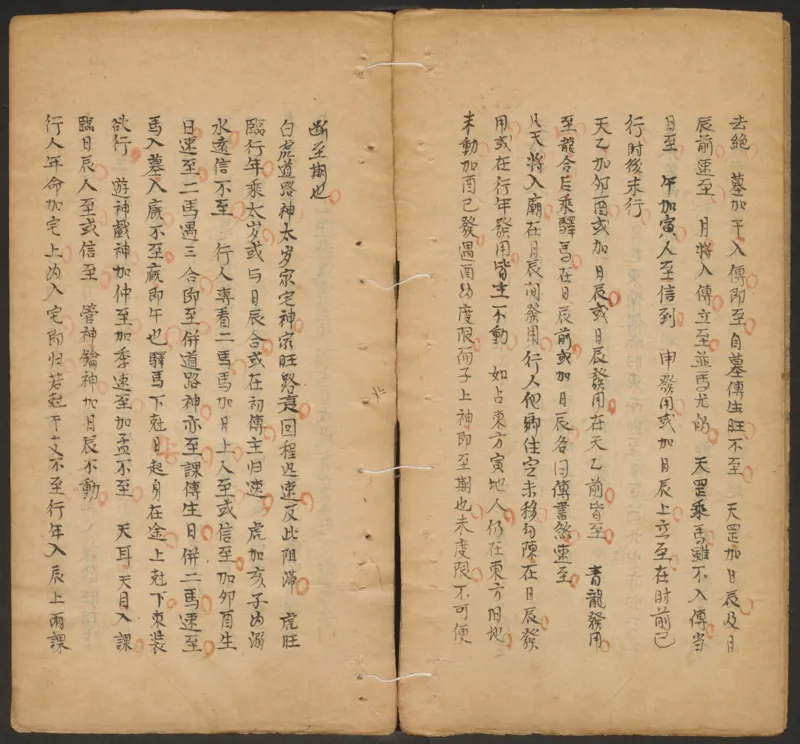 去絕　墓加干入傳即至自墓傳生旺不至　天罡加日辰及日
辰前速至　月將入傳立至並馬尤的　天罡乘馬雖不入傳当
日至　午加寅人至信到　申發用或加日辰上立至在时前已
行时後未行
天乙加卯酉或加日辰或日辰發用在天乙前皆至　青龍發用
至龍合后乘驛馬在日辰前或加日辰各因傳書煞速至
日天將入廟在日辰间發用行人他鄉住定未移勾陳在日辰發
用或在行年發用皆主一不動　如占東方寅地人仍在東方旧地
未動加酉已發遇酉為度限前子上神即至期也未度限不可便
断至期也
白虎道路神太岁家宅神家旺路衰回程迟速反此阻滯　虎旺
臨行年乘太岁或与日辰合或在初傳主归速　虎加亥子為溺
水遠信不至　行人專看二馬馬加日上人至或信至加卯酉生
日速至二馬遇三合即至併道路神亦至課傳生日併二馬速至
馬入墓入廐不至廐即午也驛馬下尅日起身在途上尅下束装
欲行　遊神戲神加仲至加季速至加孟不至　天耳天目入課
臨日辰人至或信至　管神鑰神加日辰不動
行人年命加宅上為入宅即归若尅干支不至行年入辰上兩課